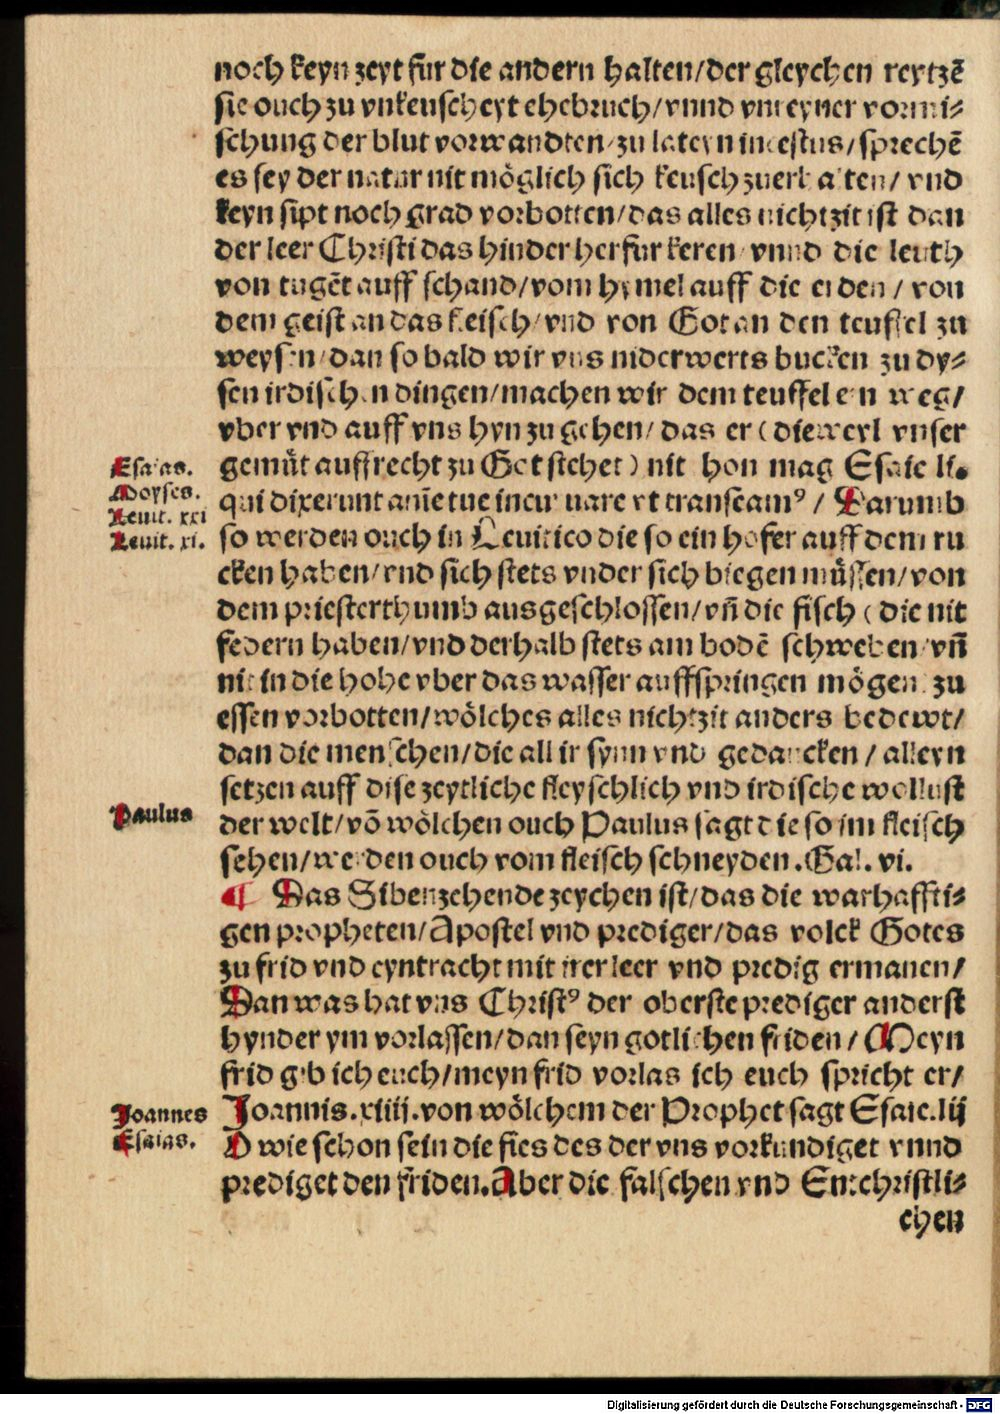 noch keyn zeyt für die andern halten/der gleychen reytzē
sie ouch zu vnkeuscheyt ehebruch/vnnd vnreyner vormi⸗
schung der blut vorwandten/zu lateyn incestus/sprechē
es sey der natur nit möglich sich keusch zuerhalten/vnd
keyn sipt noch grad vorbotten/das alles nichtzit ist dan
der leer Christi das hinder herfur keren/vnnd die leuth
von tugēt auff schand/vom hymel auff die erden/von
dem geist an das fleisch/vnd von Got an den teuffel zu
weysen/dan so bald wir vns niderwerts bucken zu dy⸗
sen irdischen dingen/machen wir dem teuffel ein weg/
vber vnd auff vns hyn zu gehen/das er (dieweyl vnser
Esaias.
gemüt auffrecht zu Got stehet) nit hon mag Esaie li.
Moyses.
Leuit. xxi
qui dixerunt anīe tue incuruare vt transeamꝰ/Darumb
Leuit. xi.
so werden ouch in Leuitico die so ein hofer auff dem ru
cken haben/vnd sich stets vnder sich biegen müssen/von
dem priesterthumb ausgeschlossen/vn̄ die fisch (die nit
federn haben/vnd derhalb stets am bodē schweben/vn̄
nit in die hohe vber das wasser auffspringen mögen) zu
essen vorbotten/wölches alles nichtzit anders bedewt/
dan die menschen/die all ir synn vnd gedancken/alleyn
setzen auff dise zeytliche fleyschlich vnd irdische wollust
Paulus
der welt/vō wölchen ouch Paulus sagt die so im fleisch
sehen/werden ouch vom fleisch schneyden.Gal.vi.
¶ Das Sibenzehende zeychen ist/das die warhaffti⸗
gen propheten/Apostel vnd prediger/das volck Gotes
zu frid vnd eyntracht mit irer leer vnd predig ermanen/
Dan was hat vns Christꝰ der oberste prediger anderst
hynder ym vorlassen/dan seyn gotlichen friden/Meyn
frid gib ich euch/meyn frid vorlas ich euch spricht er/
Joannes
Joannis.xiiii.von wölchem der Prophet sagt Esaie.lij
Esaias.
O wie schon sein die fies des der vns vorkundiget vnnd
prediget den friden.Aber die falschen vnd Entchristli⸗
chen
Digitalisierung gefördert durch die Deutsche Forschungsgemeinschaft - DFG